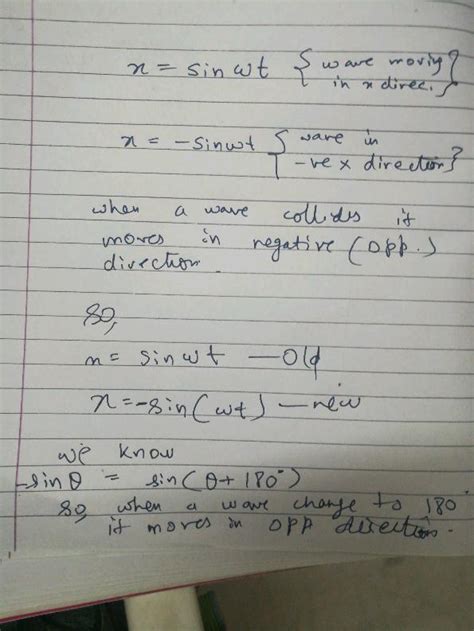 x = sin wt { wave moving
in x direc. }
x = -sinwt { wave in
-ve x direction }
when a wave collides it
moves in negative (opp.)
direction.
so,
x = sin wt — Old
x = -sin(wt) — new
we know
-sinθ = sin(θ+180°)
so, when a wave change to 180°
it moves in opp direction.